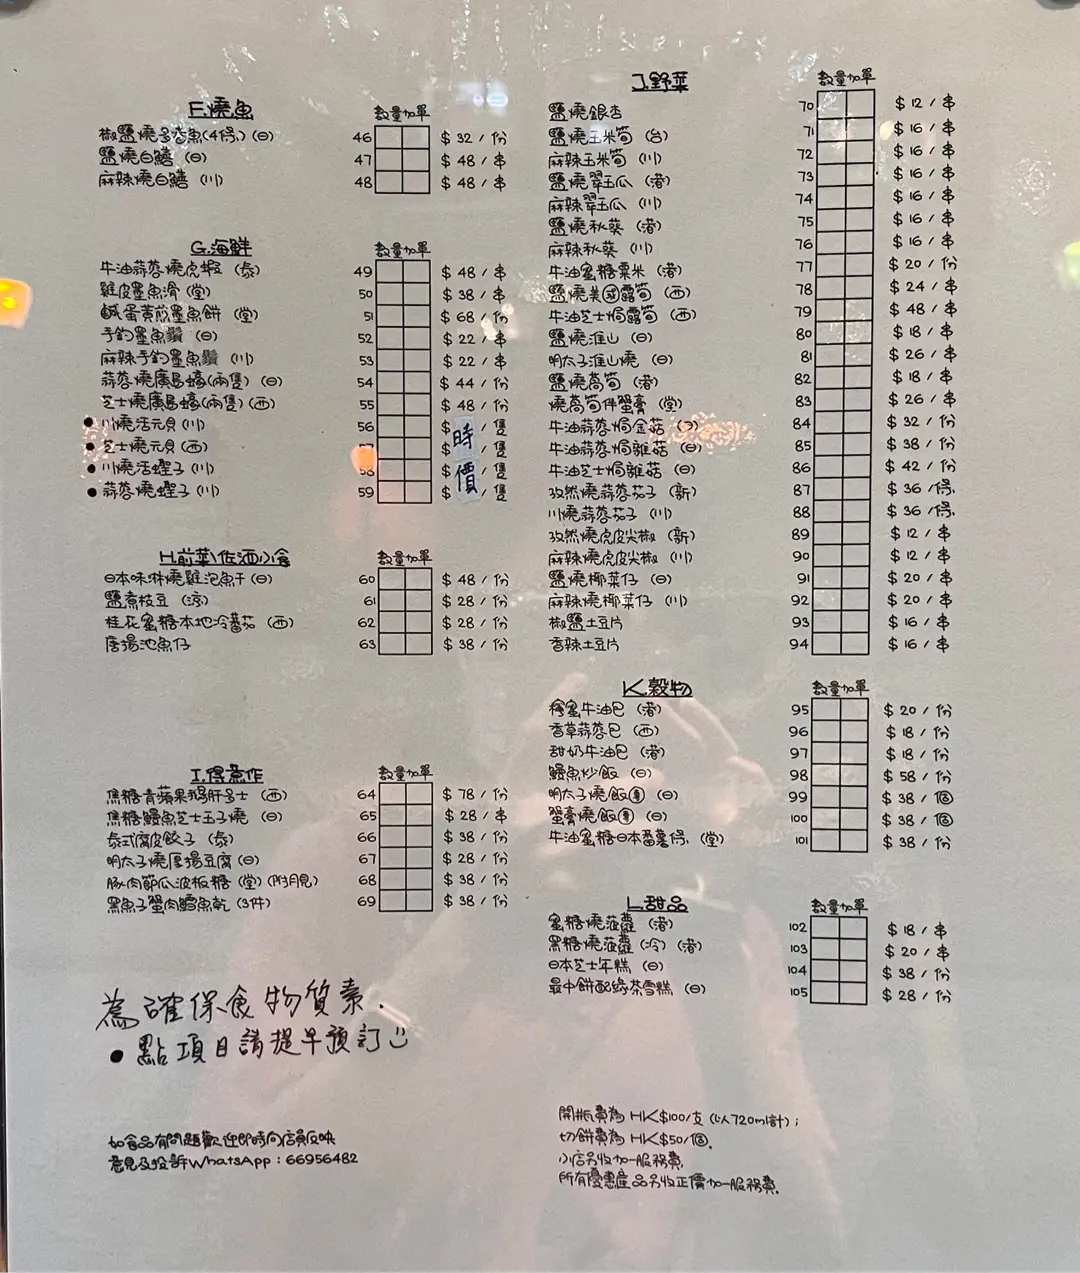 F.燒魚 數量加單
椒鹽燒多春魚(4條) (日) 46 $ 32 / 份
鹽燒白鱔 (日) 47 $ 48 / 串
麻辣燒白鱔 (川) 48 $ 48 / 串
G.海鮮 數量加單
牛油蒜蓉燒虎蝦 (泰) 49 $ 48 / 串
雞皮墨魚滑 (堂) 50 $ 38 / 串
鹹蛋黃煎墨魚餅 (堂) 51 $ 68 / 份
手釣墨魚鬚 (日) 52 $ 22 / 串
麻辣手釣墨魚鬚 (川) 53 $ 22 / 串
蒜蓉燒廣島蠔(兩隻) (日) 54 $ 44 / 份
芝士燒廣島蠔(兩隻) (西) 55 $ 48 / 份
• 川燒活元貝 (川) 56 $ 時價 / 隻
• 芝士燒元貝 (西) 57 $ / 隻
• 川燒活蟶子 (川) 58 $ / 隻
• 蒜蓉燒蟶子 (川) 59 $ / 隻
H.前菜\佐酒小食 數量加單
日本味淋燒雞泡魚干 (日) 60 $ 48 / 份
鹽煮枝豆 (涼) 61 $ 28 / 份
桂花蜜糖本地冷番茄 (西) 62 $ 28 / 份
唐揚池魚仔 63 $ 38 / 份
I.得意作 數量加單
焦糖青蘋果鵝肝多士 (西) 64 $ 78 / 份
焦糖鰻魚芝士玉子燒 (日) 65 $ 28 / 串
泰式腐皮餃子 (泰) 66 $ 38 / 份
明太子燒唐揚豆腐 (日) 67 $ 28 / 份
豚肉節瓜波板糖 (堂) (附月見) 68 $ 38 / 份
黑魚子蟹肉鱈魚乾 (3件) 69 $ 38 / 份
為確保食物質素.
• 點項目請提早預訂
如食品有問題歡迎即時向店員反映
意見及投訴WhatsApp：66956482
J.野菜 數量加單
鹽燒銀杏 70 $ 12 / 串
鹽燒玉米筍 (台) 71 $ 16 / 串
麻辣玉米筍 (川) 72 $ 16 / 串
鹽燒翠玉瓜 (港) 73 $ 16 / 串
麻辣翠玉瓜 (川) 74 $ 16 / 串
鹽燒秋葵 (港) 75 $ 16 / 串
麻辣秋葵 (川) 76 $ 16 / 串
牛油蜜糖粟米 (港) 77 $ 20 / 份
鹽燒美國露筍 (西) 78 $ 24 / 串
牛油芝士焗露筍 (西) 79 $ 48 / 串
鹽燒淮山 (日) 80 $ 18 / 串
明太子淮山燒 (日) 81 $ 26 / 串
鹽燒萵筍 (港) 82 $ 18 / 串
燒萵筍伴蟹膏 (堂) 83 $ 26 / 串
牛油蒜蓉焗金菇 84 $ 32 / 份
牛油蒜蓉焗雜菇 (日) 85 $ 38 / 份
牛油芝士焗雜菇 (日) 86 $ 42 / 份
孜然燒蒜蓉茄子 (新) 87 $ 36 / 條
川燒蒜蓉茄子 (川) 88 $ 36 / 條
孜然燒虎皮尖椒 (新) 89 $ 12 / 串
麻辣燒虎皮尖椒 (川) 90 $ 12 / 串
鹽燒椰菜仔 (日) 91 $ 20 / 串
麻辣燒椰菜仔 (川) 92 $ 20 / 串
椒鹽土豆片 93 $ 16 / 串
香辣土豆片 94 $ 16 / 串
K.穀物 數量加單
蜜牛油包 (港) 95 $ 20 / 份
香草蒜蓉包 (西) 96 $ 18 / 份
甜奶牛油包 (港) 97 $ 18 / 份
鰻魚炒飯 (日) 98 $ 58 / 份
明太子燒飯團 (日) 99 $ 38 / 個
蟹膏燒飯團 (日) 100 $ 38 / 個
牛油蜜糖日本番薯條 (堂) 101 $ 38 / 份
L.甜品 數量加單
蜜糖燒菠蘿 (港) 102 $ 18 / 串
黑糖燒菠蘿 (冷) (港) 103 $ 20 / 串
日本芝士年糕 (日) 104 $ 38 / 份
最中餅配綠茶雪糕 (日) 105 $ 28 / 份
開瓶費為 HK$100/支 (以720ml計)；
切餅費為 HK$50/個.
小店另收加一服務費.
所有優惠產品另收正價加一服務費.